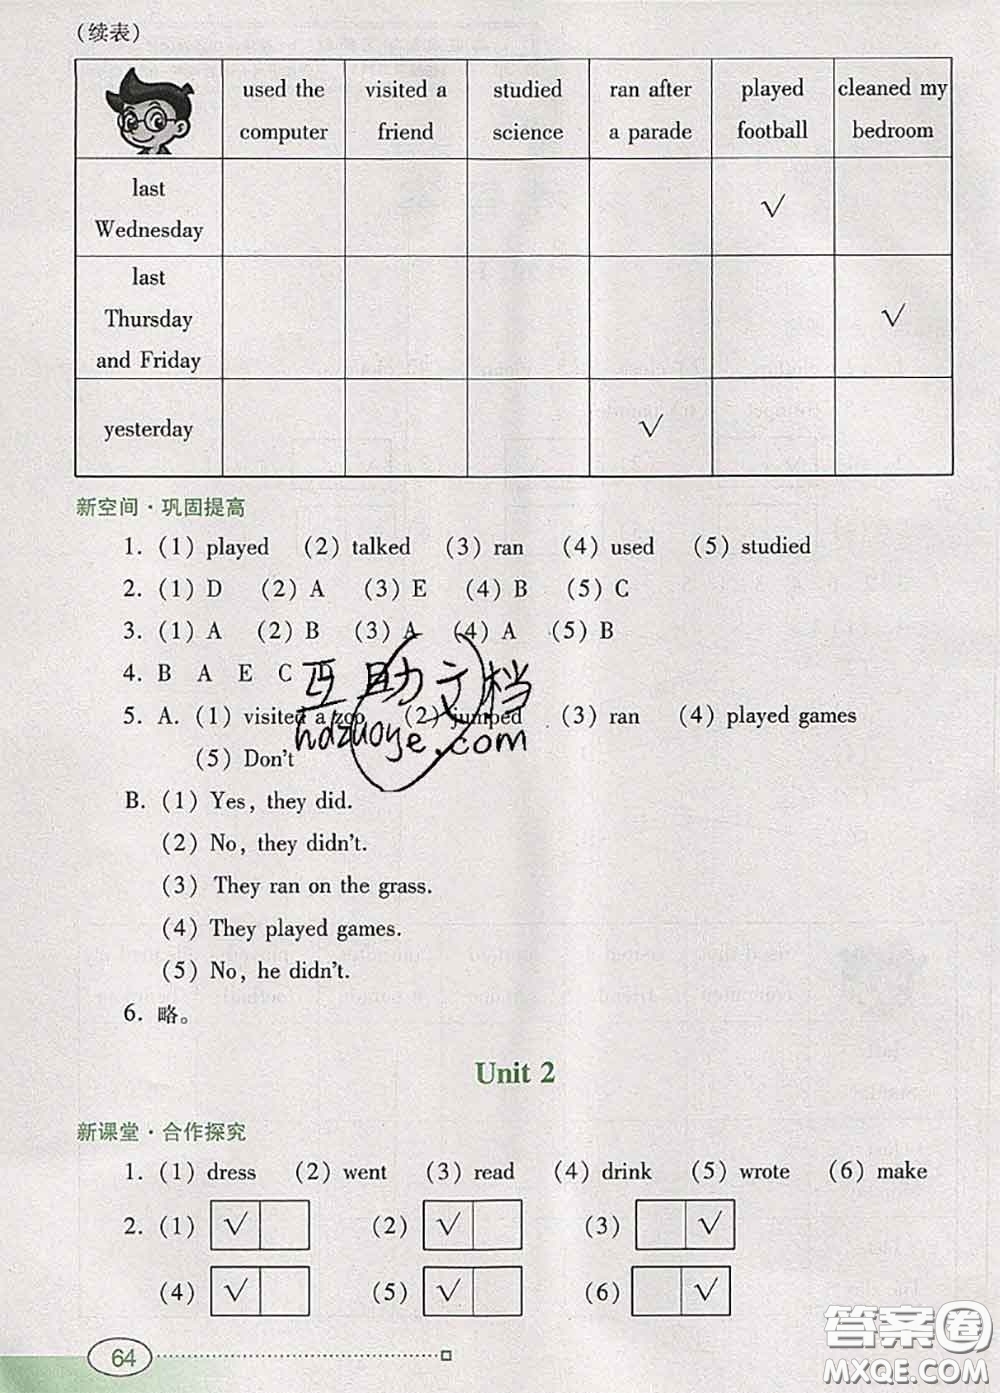 （续表）
used the computer visited a friend studied science ran after a parade played football cleaned my bedroom
last Wednesday √
last Thursday and Friday √
yesterday √
新空间·巩固提高
1. (1) played (2) talked (3) ran (4) used (5) studied
2. (1) D (2) A (3) E (4) B (5) C
3. (1) A (2) B (3) A (4) A (5) B
4. B A E C
5. A. (1) visited a zoo (2) jumped (3) ran (4) played games
(5) Don't
B. (1) Yes, they did.
(2) No, they didn't.
(3) They ran on the grass.
(4) They played games.
(5) No, he didn't.
6. 略。
Unit 2
新课堂·合作探究
1. (1) dress (2) went (3) read (4) drink (5) wrote (6) make
2. (1) √ (2) √ (3) √
(4) √ (5) √ (6) √
64
互助文档
hdzuoye.com
答案圈
MXQE.COM